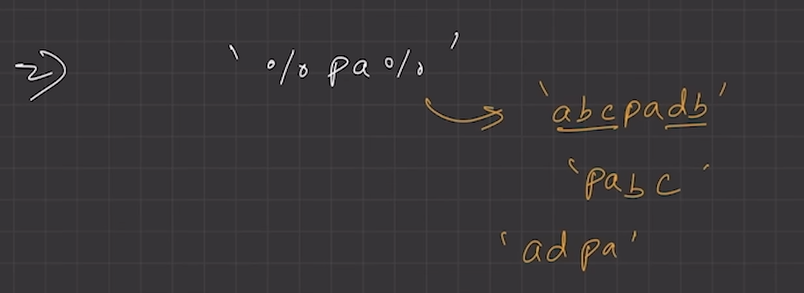 2) '%pa%'
'abcpadb'
'pabc'
'adpa'